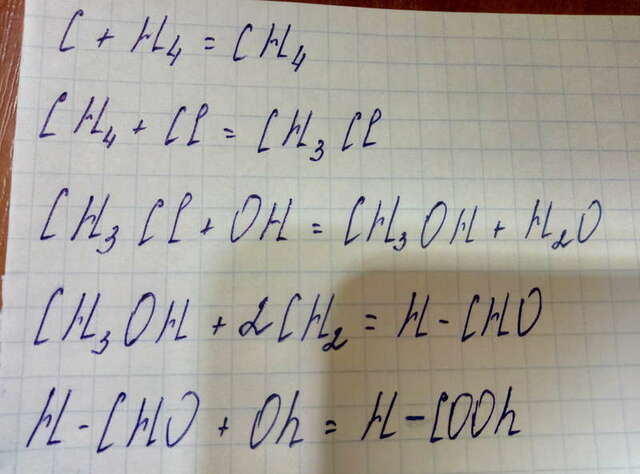 C + H₄ = CH₄
CH₄ + Cl = CH₃Cl
CH₃Cl + OH = CH₃OH + H₂O
CH₃OH + 2CH₂ = H - CHO
H - CHO + Oh = H - COOh